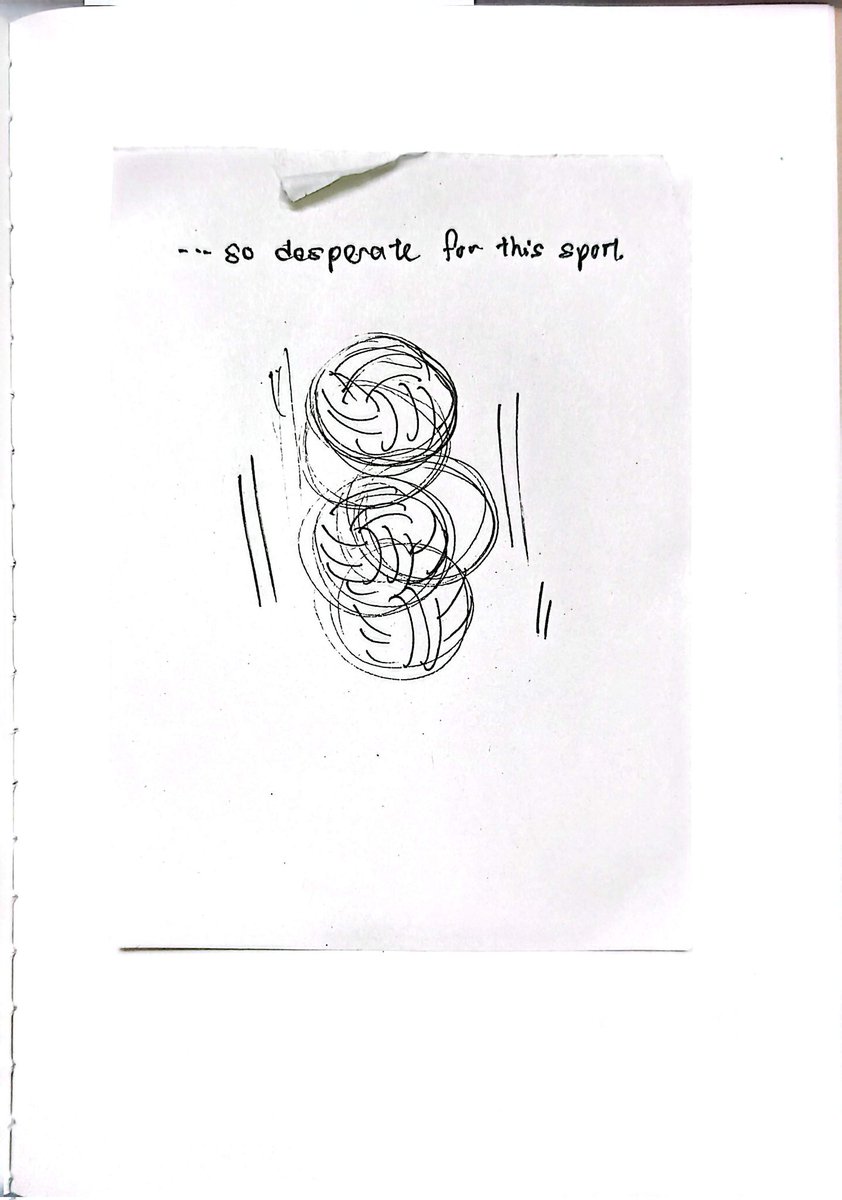 --- so desperate for this sport.